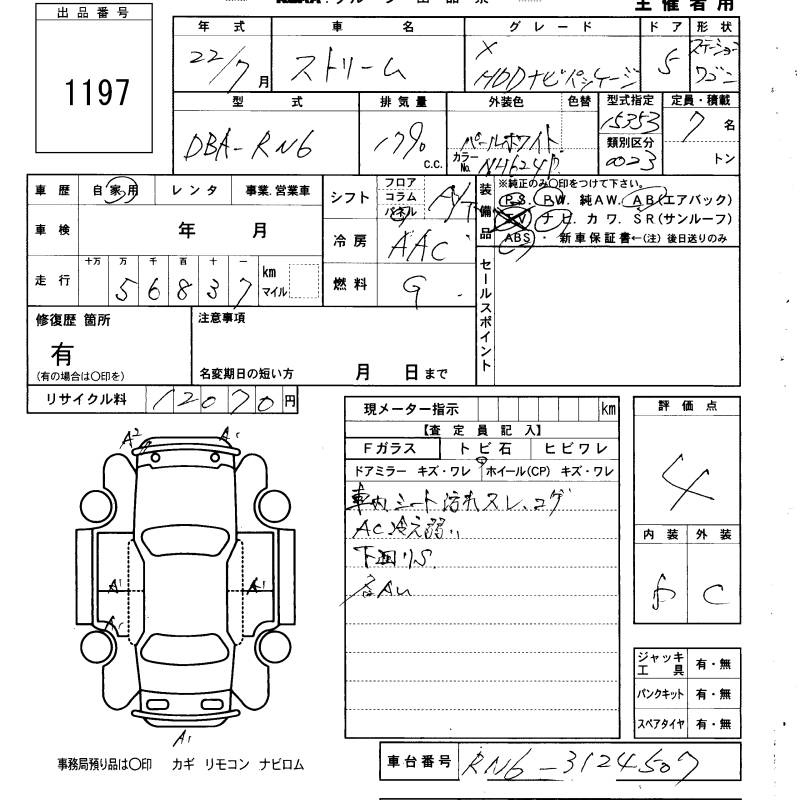 出品番号
1197
主催者用
年式 車名 グレード ドア 形状
22/7月 ストリーム X HDDナビパッケージ 5 ステーションワゴン
型式 排気量 外装色 色替 型式指定 定員・積載
DBA-RN6 1790 c.c. パールホワイト 15353 7名
カラーNo. NH624P 類別区分 0023 トン
車歴 自家用 レンタ 事業.営業車
シフト フロア コラム パネル A/T
装備品 ※純正のみ〇印をつけて下さい。
P.S. P.W. 純A.W. A.B(エアバック)
T.V ナビ. カワ. S R(サンルーフ)
ABS・ 新車保証書←(注) 後日送りのみ
車検 年 月
冷房 AAC
走行 十万 万 千 百 十 一 km マイル
56837
燃料 G
セールスポイント
修復歴 箇所
有
(有の場合は〇印を)
注意事項
名変期日の短い方 月 日まで
リサイクル料 12070円
現メーター指示 km
【査定員記入】
Fガラス トビ石 ヒビワレ
ドアミラー キズ・ワレ ホイール(CP) キズ・ワレ
車内シート汚れスレ、コゲ
AC冷え弱い
下回りS
各AU
評価点
4
内装 外装
C
A2 A1
A1 A1
A1
A1
ジャッキ工具 有・無
パンクキット 有・無
スペアタイヤ 有・無
事務局預り品は〇印 カギ リモコン ナビロム
車台番号 RN6-3124507